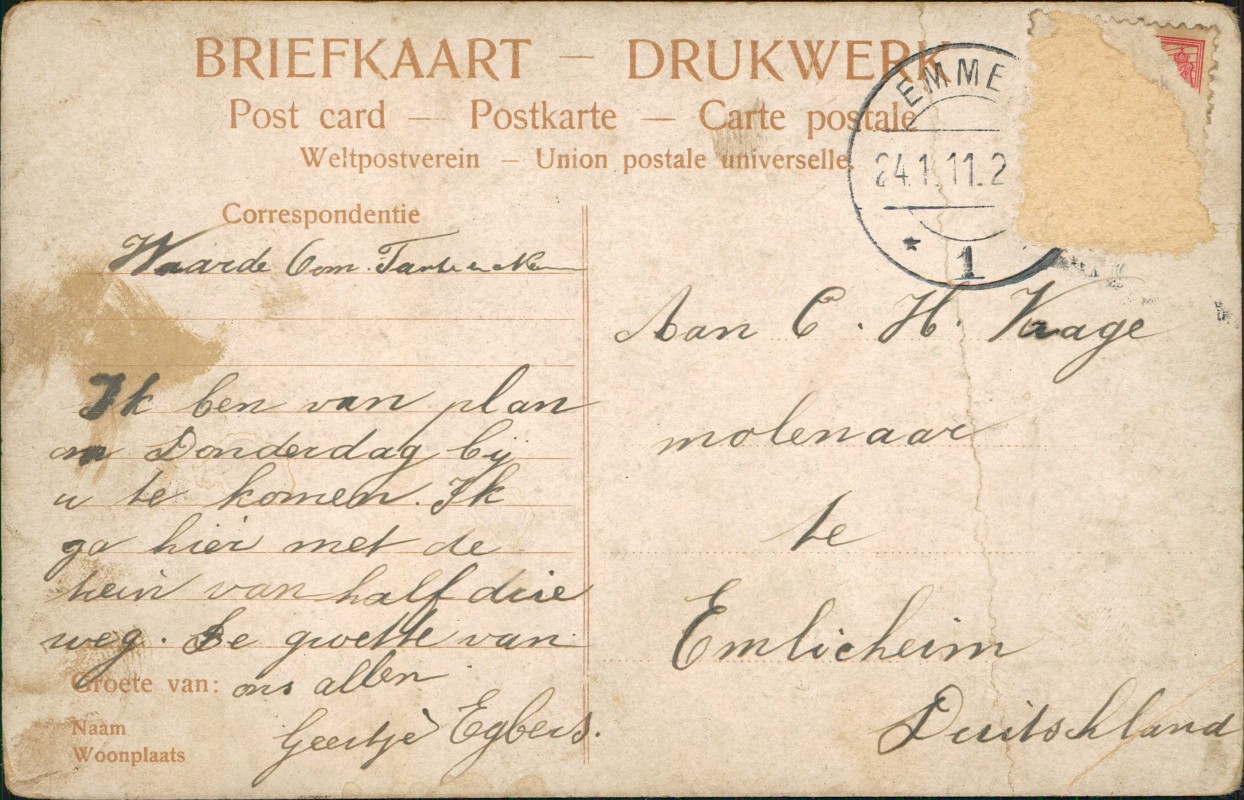 BRIEFKAART — DRUKWERK
Post card — Postkarte — Carte postale
Weltpostverein — Union postale universelle
EMME
24.1.11.2
* 1
Correspondentie
Waarde Oom Tante en
Aan C. H. Vaage
Ik ben van plan
om Donderdag bij
u te komen. Ik
ga hier met de
trein van half drie
weg. De groette van
Groete van: ons allen
Geertje Egbers.
Naam
Woonplaats
molenaar
te
Emlicheim
Duitschland